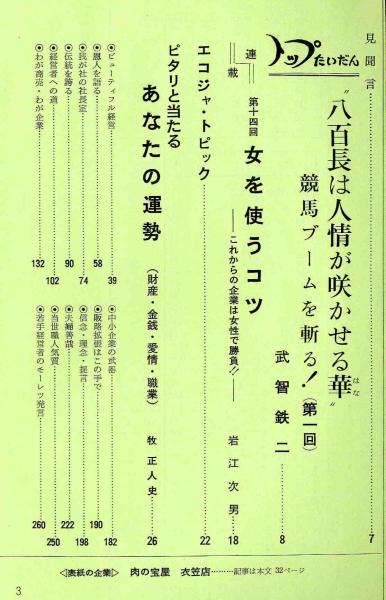 見聞言……7
トップたいだん
“八百長は人情が咲かせる華”
はな
競馬ブームを斬る！（第一回）
武智鉄二……8
連載
第十四回
女を使うコツ
――これからの企業は女性で勝負!!――
岩江次男……18
エコジャ・トピック……22
ピタリと当たる
あなたの運勢
（財産・金銭・愛情・職業）
牧正人史……26
◉ビューティフル経営……39
◉恩人を語る……58
◉我が社の社長室……74
◉伝統を誇る……90
◉経営者への道……102
◉わが商売・わが企業……132
◉中小企業の武器……182
◉販路拡張はこの手で……190
◉信念・理念・提言……198
◉夫婦善哉……222
◉当世職人気質……250
◉若手経営者のモーレツ発言……260
〈表紙の企業〉 肉の宝屋 衣笠店………記事は本文 32ページ
3